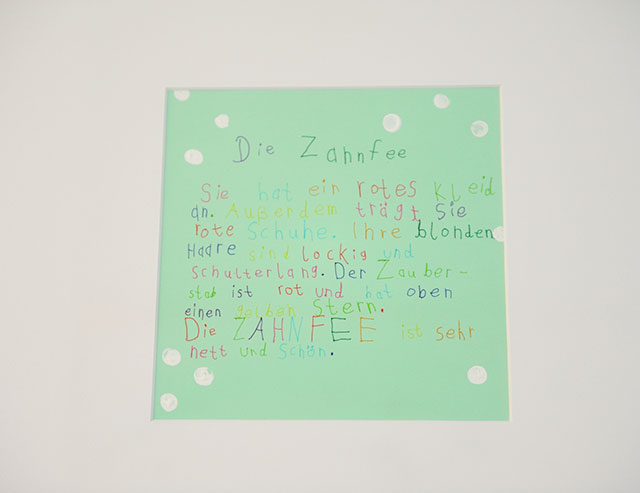 Die Zahnfee
Sie hat ein rotes Kleid
an. Außerdem trägt Sie
rote Schuhe. Ihre blonden
Haare sind lockig und
schulterlang. Der Zauber-
stab ist rot und hat oben
einen gelben Stern.
Die ZAHNFEE ist sehr
nett und Schön.